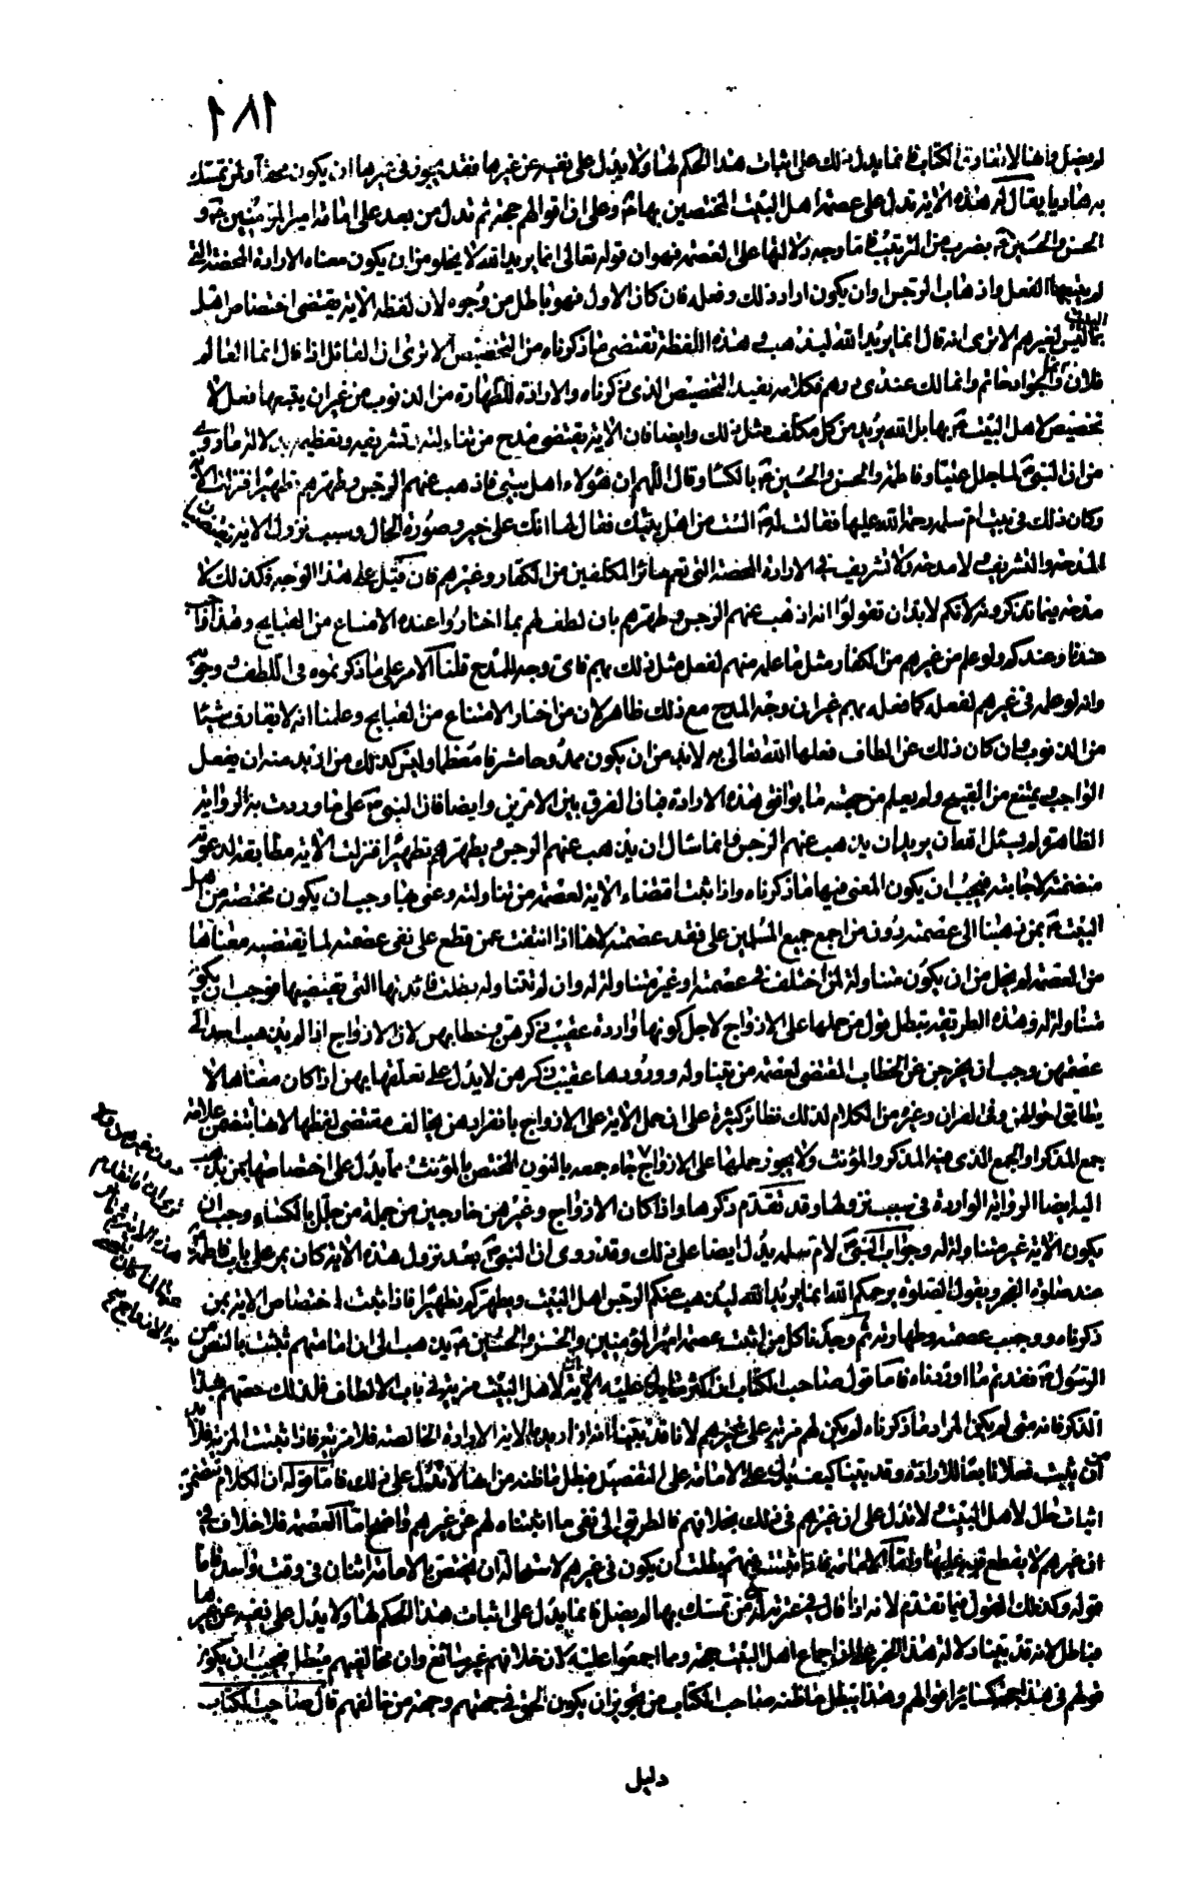 ١٨١
لم يضل وانها لا تفارق الكتاب فانما يدل ذلك على اثبات هذا الحكم لها ولا يدل على نفيه عن غيرها فقد يجوز في غيرها ان يكون محقا ولمن تمسك
به هاديا يقال له هذه الاية تدل على عصمة اهل البيت المختصين بها ع وعلى ان قولهم حجة ثم تدل من بعد على امامة امير المؤمنين ع و
الحسن والحسين ع بضرب من الترتيب فاما وجه دلالتها على العصمة فهو ان قوله تعالى انما يريد الله لا يخلو من ان يكون معناه الارادة المحضة التي
لم يتبعها الفعل واذهاب الرجس او ان يكون اراد ذلك وفعله فان كان الاول فهو باطل من وجوه لان لفظة الاية يقتضى اختصاص اهل البيت
بما ليس لغيرهم الا ترى انه قال انما يريد الله ليذهب وهذه اللفظة تقتضى ما ذكرناه من التخصيص الا ترى ان القائل اذا قال انما العالم
فلان وانما الجواد حاتم وانما لك عندى درهم فكلامه يفيد التخصيص الذى ذكرناه والارادة للطهارة من الذنوب من غير ان يتبعها فعل لا
تخصيص لاهل البيت ع بها بل الله يريد من كل مكلف مثل ذلك وايضا فان الاية يقتضى مدح من تناولته وتشريفه وتعظيمه بدلالة ما روى
من ان النبى ص لما جلل عليا وفاطمة والحسن والحسين ع بالكساء وقال اللهم ان هؤلاء اهل بيتى فاذهب عنهم الرجس وطهرهم تطهيرا فنزلت الاية
وكان ذلك في بيت ام سلمة رحمة الله عليها فقالت له ص الست من اهل بيتك فقال لها انك على خير وصورة الحال وسبب نزول الاية يقتضيان
المدحة والتشريف ولا مدحة ولا تشريف في الارادة المحضة التى تعم سائر المكلفين من الكفار وغيرهم فان قيل على هذا الوجه فكذلك لا
مدحة فيما تذكرونه لانكم لا بد ان تقولوا انه اذهب عنهم الرجس وطهرهم بان لطف لهم بما اختاروا عنده الامتناع من القبايح وهذا واجب
عندنا وعندكم ولو علم من غيرهم من الكفار مثل ما علمه منهم لفعل مثل ذلك بهم فاى وجه للمدح قلنا الامر على ما ذكرتموه فى اللطف ووجوبه
وانه لو علمه فى غيرهم لفعله كما فعله بهم غير ان وجه المدح مع ذلك ظاهر لان من اختار الامتناع من القبايح وعلمنا انه لا يقارف شيئا
من الذنوب وان كان ذلك عن الطاف فعلها الله تعالى به لا بد من ان يكون ممدوحا مشرفا معظما وليس كذلك من اريد منه ان يفعل
الواجب ويمتنع من القبيح ولم يعلم من جهته ما يوافق هذه الارادة فبان الفرق بين الامرين وايضا فان النبى ص على ما وردت به الرواية
الظاهرة لم يسئل الله ان يريد ان يذهب عنهم الرجس وانما سال ان يذهب عنهم الرجس ويطهرهم تطهيرا فنزلت الاية مطابقة لدعوته
متضمنة لاجابته فيجب ان يكون المعنى فيها ما ذكرناه واذا ثبت اقتضاء الاية لعصمة من تناولته وعنى بها وجب ان يكون مختصة من اهل
البيت ع بمن ذهبنا الى عصمته دون من اجمع جميع المسلمين على فقد عصمته لانها اذا انتفت عمن قطع على نفى عصمته لما يقتضيه معناها
من العصمة لم يخل من ان يكون متناولة لمن اختلف في عصمته او غير متناولة له وان لم تتناوله بطلت فائدتها التى يقتضيها فوجب ان يكون
متناولة له وهذه الطريقة يبطل قول من حملها على الازواج لاجل كونها واردة عقيب ذكرهن وخطابهن لان الازواج اذا لم يذهب احد الى
عصمتهن وجب ان يخرجن عن الخطاب المقتضى لعصمة من يتناوله وورودها عقيب ذكرهن لا يدل على تعلقها بهن اذا كان معناها لا
يطابق احوالهن وفى القران وغيره من الكلام لذلك نظائر كثيرة على ان حمل الاية على الازواج بانفرادهن يخالف مقتضى لفظها لانها تتضمن علامة
جمع المذكر او الجمع الذى فيه المذكر والمؤنث ولا يجوز حملها على الازواج جاء جمعه بالنون المختص بالمؤنث مما يدل على اختصاصها بمن نذهب
اليه ايضا الرواية الواردة فى سبب نزولها وقد تقدم ذكرها واذا كان الازواج وغيرهن خارجين من جملة من جلل بالكساء وجب ان
يكون الاية غير متناولة له وجواب النبى ص لام سلمة يدل ايضا على ذلك وقد روى ان النبى ص بعد نزول هذه الاية كان يمر على باب فاطمة ع
عند صلوة الفجر ويقول الصلوة يرحمكم الله انما يريد الله ليذهب عنكم الرجس اهل البيت ويطهركم تطهيرا فاذا ثبت اختصاص الاية بمن
ذكرناه ووجب عصمته وطهارته ثم وجدنا كل من اثبت عصمة امير المؤمنين والحسن والحسين ع يذهب الى ان امامتهم ثبتت بالنص من
الرسول ص فقد تم ما اوردناه فاما قول صاحب الكتاب ان اكثر ما يدل عليه الاية ان لاهل البيت مزية فى باب الالطاف فلذلك خصهم بهذا
الذكر فانه متى لم يكن المراد ما ذكرناه لم يكن لهم مزية على غيرهم لانا قد بينا انه اذا اريد بالاية الارادة الخالصة فلا مزية فاذا ثبتت المزية فلا بد
من ان يثبت فعلا تابعا للارادة وقد بينا كيف يدل على الامامة على التفصيل فبطل ما ظنه من انها لا تدل على ذلك فاما قوله ان الكلام يتضمن
اثبات حال لاهل البيت ولا تدل على ان غيرهم فى ذلك بخلافهم فالطريق الى نفى ما اثبتناه لهم عن غيرهم واضح اما العصمة فلا خلاف فى
ان غيرهم لا يقطع فيه عليها واما الامامة فاذا ثبتت فيهم بطلت ان يكون فى غيرهم لاستحالة ان يختص بالامامة اثنان فى وقت واحد فاما
قوله وكذلك القول فيما تقدم لانه اذا قال فى عترته ان من تمسك بها لم يضل فانما يدل على اثبات هذا الحكم لها ولا يدل على نفيه عن غيرها
فباطل لانه قد بينا دلالة هذا الخبر على ان اجماع اهل البيت حجة وما اجمعوا عليه كان خلافهم غير سائغ وان مخالفهم مبطل فيجب ان يكون
قولهم فى هذا حجة كسائر اقوالهم وهذا يبطل ما ظنه صاحب الكتاب من تجويز ان يكون الحق فى جهتهم وجهة من خالفهم قال صاحب الكتاب
دليل